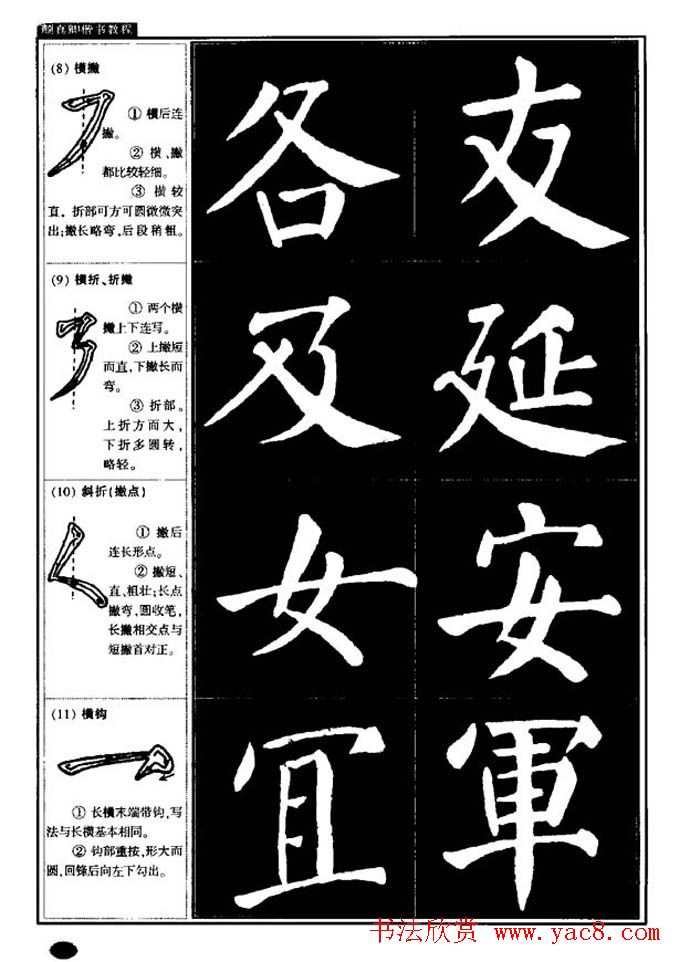 颜真卿楷书教程
(8) 横撇
① 横后连
撇。
② 横、撇
都比较轻细。
③ 横较
直，折部可方可圆微微突
出;撇长略弯,后段稍粗。
各 支
(9) 横折、折撇
① 两个横
撇上下连写。
② 上撇短
而直,下撇长而
弯。
③ 折部。
上折方而大,
下折多圆转,
略轻。
及 延
(10) 斜折(撇点)
① 撇后
连长形点。
② 撇短、
直、粗壮;长点
撇弯,圆收笔,
长撇相交点与
短撇首对正。
女 安
(11) 横钩
① 长横末端带钩,写
法与长横基本相同。
② 钩部重按,形大而
圆,回锋后向左下勾出。
冝 軍
书法欣赏 www.yac8.com